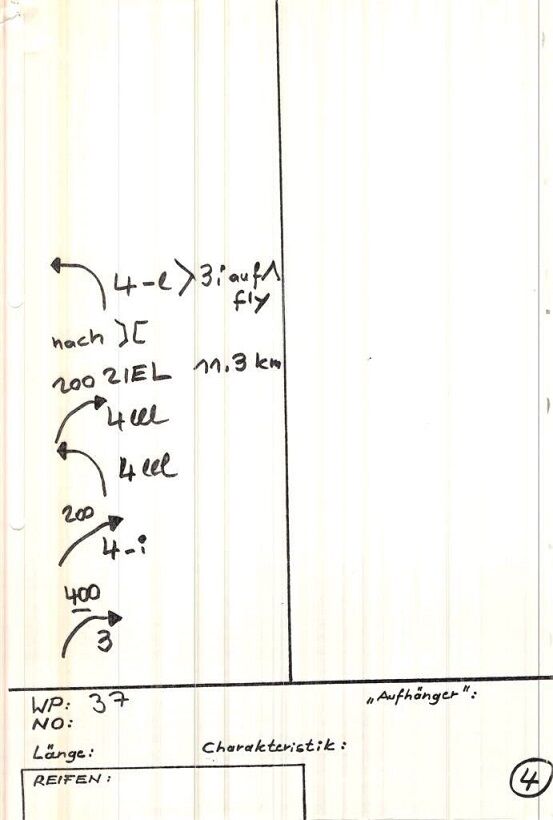 4-l > 3i auf
fly
nach
200 ZIEL 11.3 km
4 lll
4 lll
200
4-i
400
3
WP: 37 „Aufhänger":
NO:
Länge: Charakteristik:
REIFEN:
4